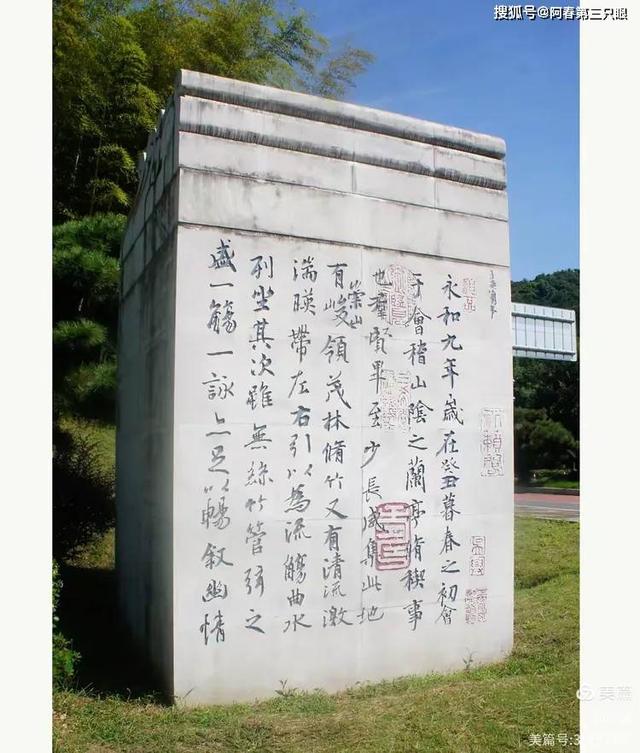 搜狐号@阿春第三只眼
永和九年歲在癸丑暮春之初會
于會稽山陰之蘭亭脩稧事
也羣賢畢至少長咸集此地
有崇山峻領茂林脩竹又有清流激
湍暎帶左右引以為流觴曲水
列坐其次雖無絲竹管弦之
盛一觴一詠亦足以暢敘幽情
美篇
美篇号: